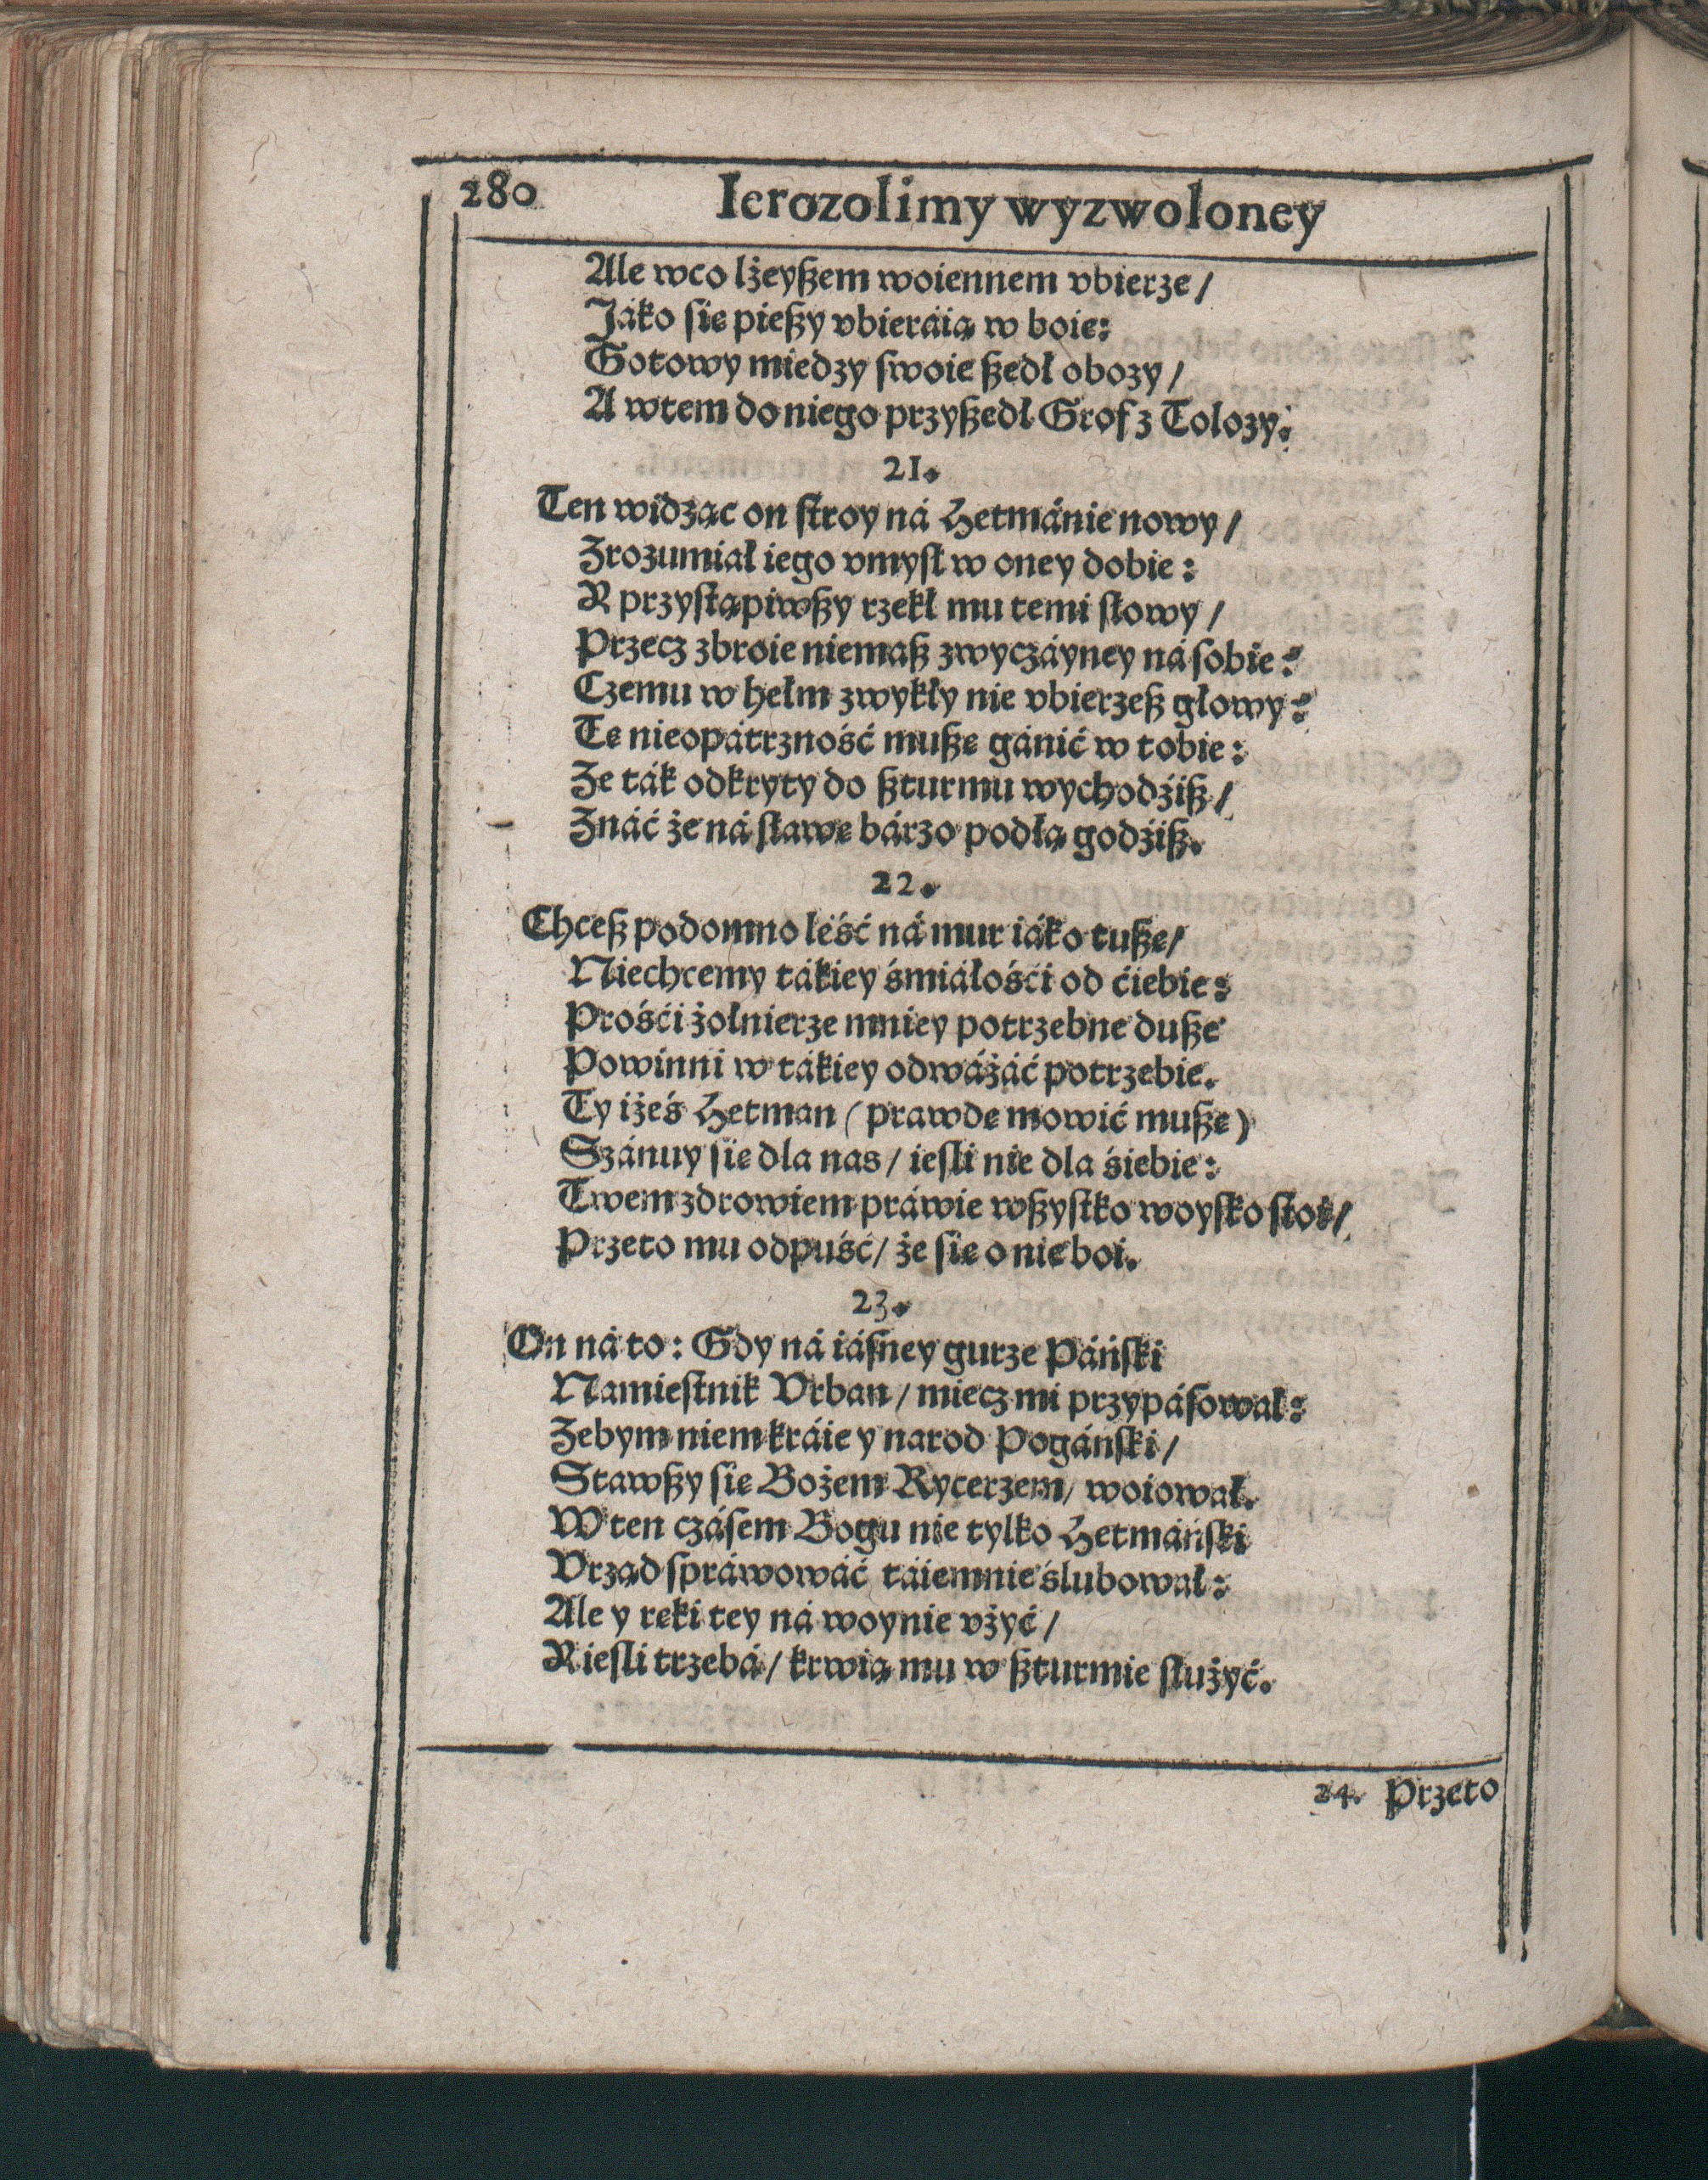 280 Ierozolimy wyzwoloney
Ale wco lżeyßem woiennem vbierze/
Jáko sie pießy vbieráią w boie:
Gotowy miedzy swoie ßedł obozy/
A wtem do niego przyßedł Grof z Tolozy.
21.
Ten widząc on stroy ná Hetmánie nowy/
Zrozumiał iego vmysł w oney dobie:
Y przystąpiwßy rzekł mu temi słowy/
Przecz zbroie niemaß zwyczáyney ná sobie:
Czemu w hełm zwykły nie vbierzeß głowy:
Te nieopátrzność muße gánić w tobie:
Ze ták odkryty do ßturmu wychodźiß/
Znáć że ná sławe bárzo podłą godźiß.
22.
Chceß podomno leść ná mur iáko tuße/
Niechcemy tákiey śmiáłośći od ćiebie:
Prośći żołnierze mniey potrzebne duße
Powinni w tákiey odważáć potrzebie.
Ty iżeś Hetman (prawde mowić muße)
Szánuy sie dla nas/ iesli nie dla śiebie:
Twem zdrowiem práwie wßystko woysko stoi/
Przeto mu odpuść/ że sie o nie boi.
23.
On ná to: Gdy ná iásney gurze Páński
Namiestnik Vrban/ miecz mi przypásował:
Zebym niem kráie y narod Pogáński/
Stawßy sie Bożem Rycerzem/ woiował.
W ten czásem Bogu nie tylko Hetmáński
Vrząd spráwowáć táiemnie ślubował:
Ale y reki tey ná woynie vżyć/
Y iesli trzebá/ krwią mu w ßturmie służyć.
24. Przeto